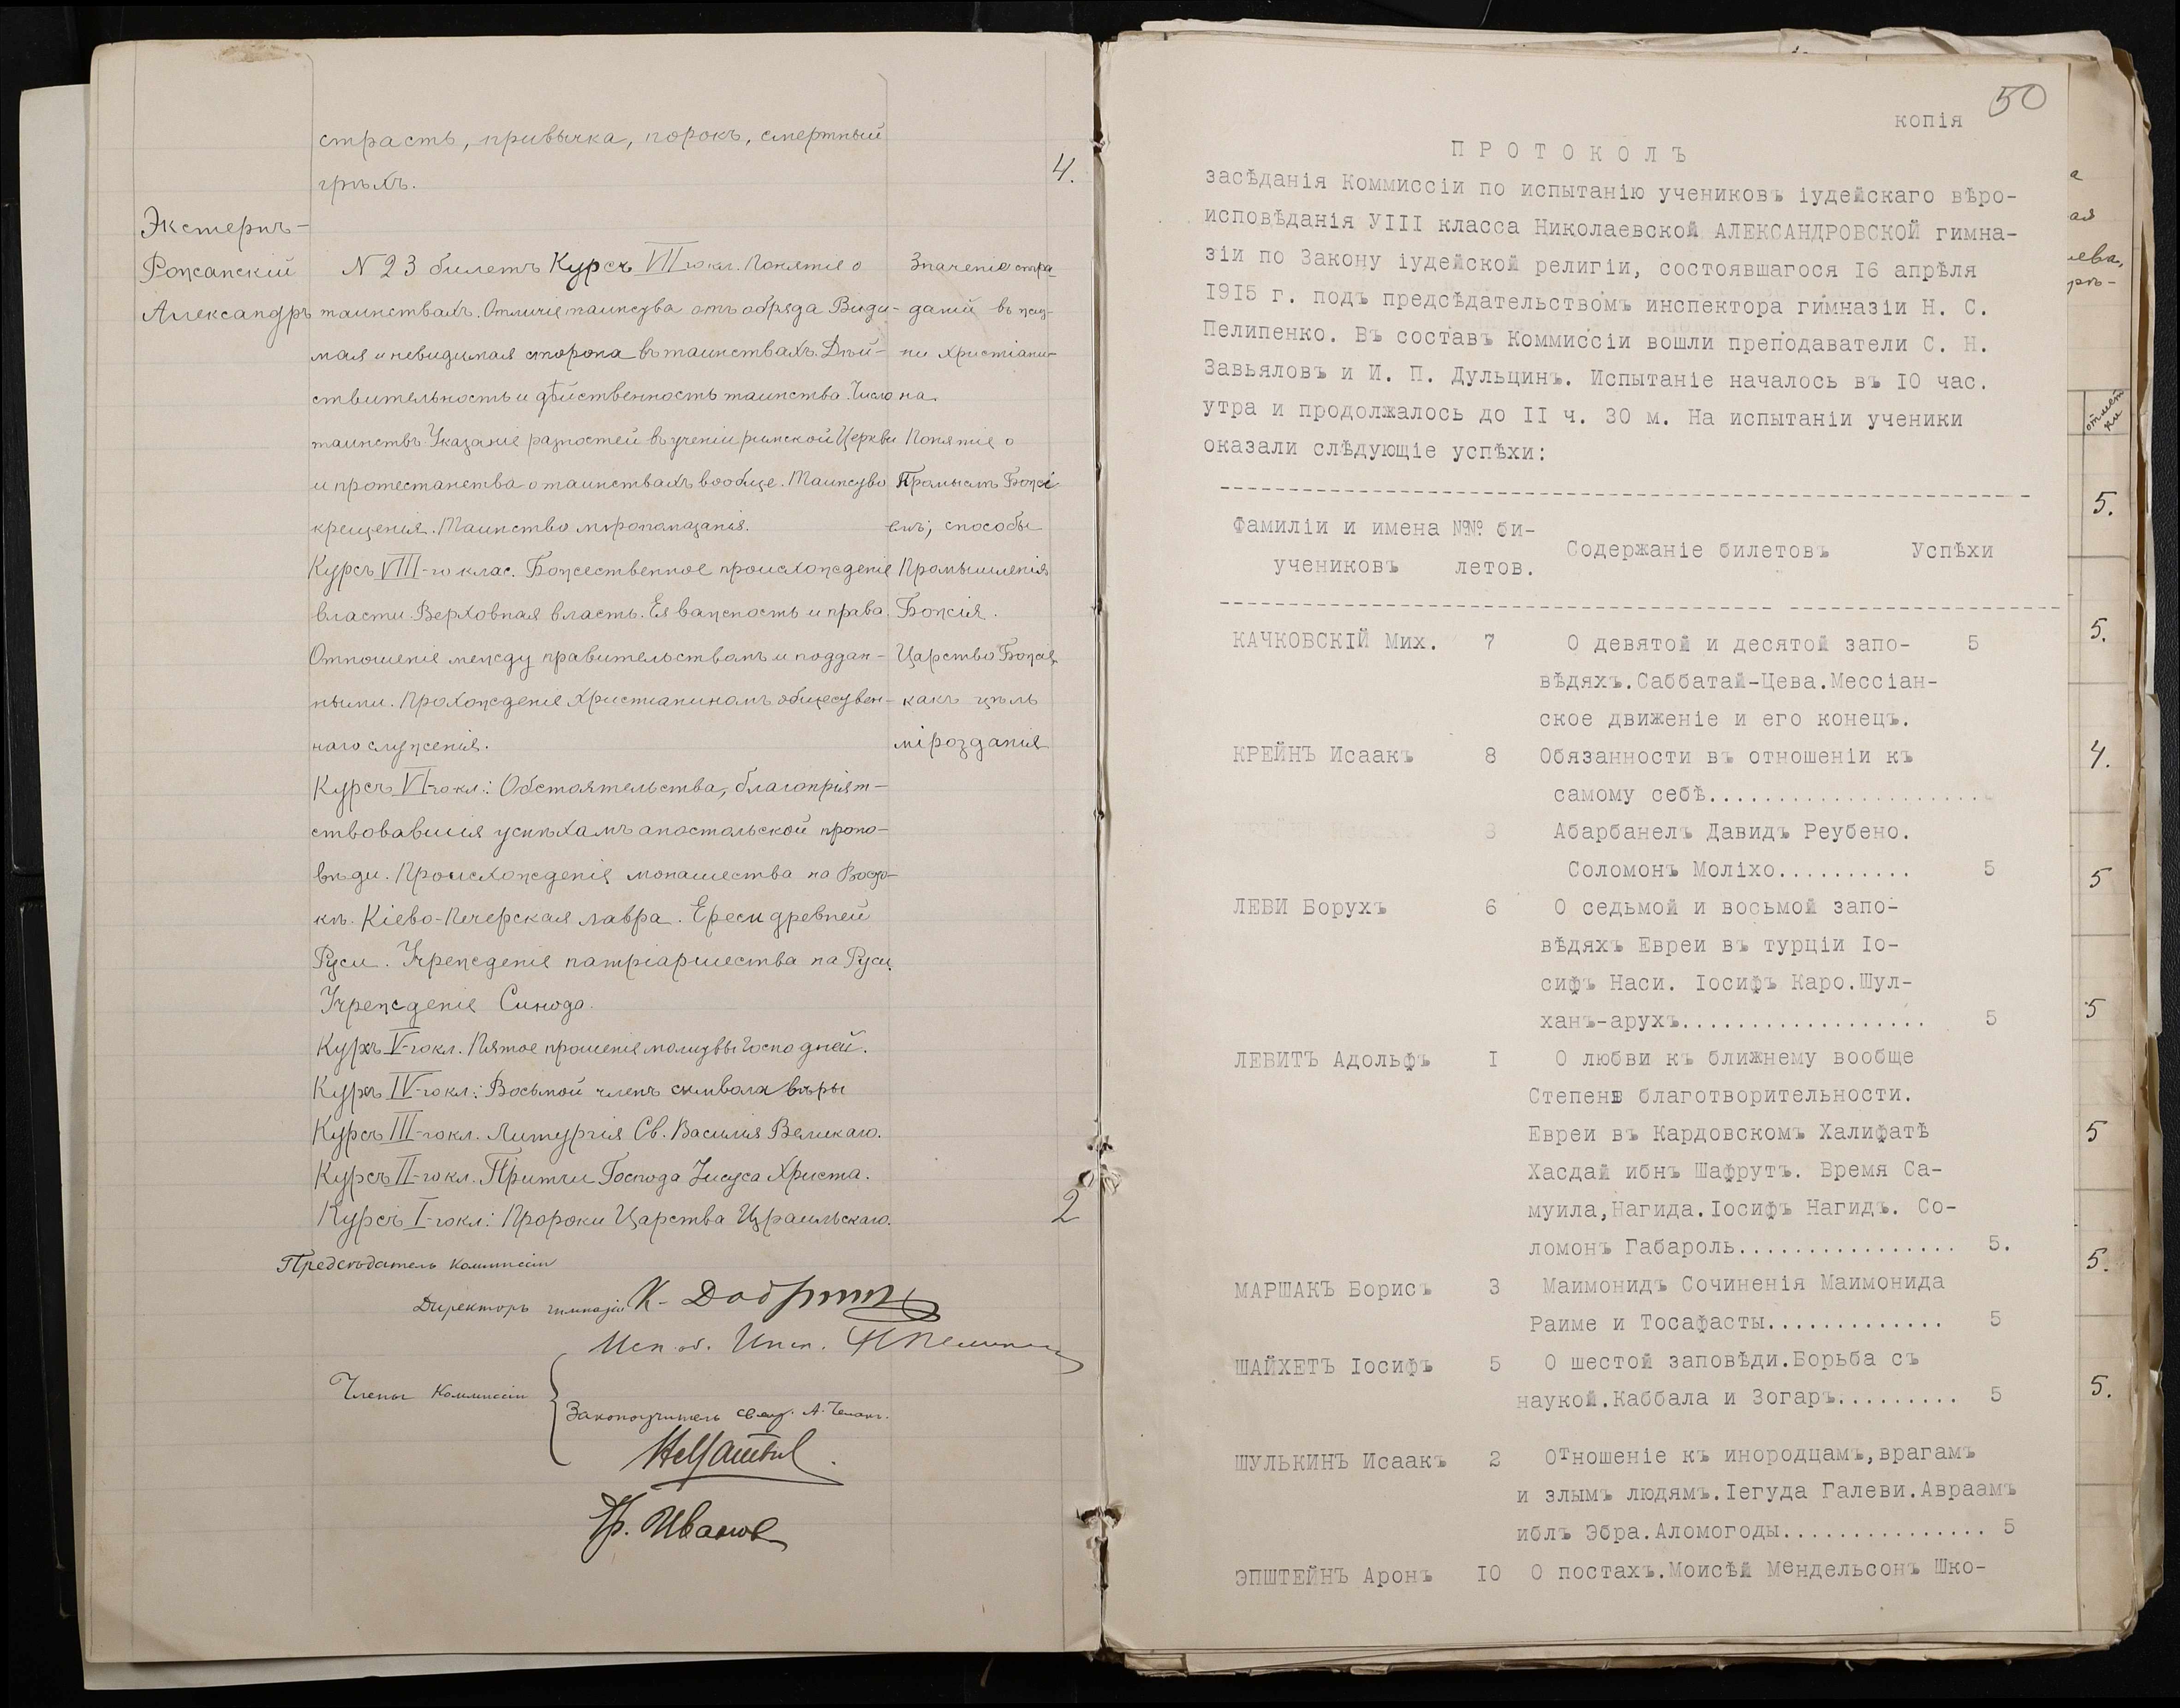 страсть, привычка, порокъ, смертный
грѣхъ.
4.
Экстернъ-
Рожанскій
Александръ
N 23 билетъ Курсъ VII го кл. Понятіе о
таинствахъ. Отличіе таинства отъ обряда Види-
мая и невидимая сторона въ таинствахъ. Дѣй-
ствительность и дѣйственность таинства. Число
таинствъ. Указаніе разностей въ ученіи римской Церкви
и протестанства о таинствахъ вообще. Таинство
крещенія. Таинство мѵропомазанія.
Курсъ VIII-го клас. Божественное происхожденіе
власти. Верховная власть. Ея важность и права.
Отношеніе между правительствомъ и поддан-
ными. Прохожденіе христианиномъ обществен-
наго служенія.
Курсъ VI-го кл.: Обстоятельства, благопріят-
ствовавшія успѣхамъ апостольской пропо-
вѣди. Происхожденіе монашества на Восто-
кѣ. Кіево-Печерская лавра. Ереси древней
Руси. Учрежденіе патріаршества на Руси.
Учрежденіе Синода.
Курсъ V-го кл. Пятое прошеніе молитвы Господней.
Курсъ IV-го кл.: Восьмой членъ символа вѣры
Курсъ III-го кл. Литургія Св. Василія Великаго.
Курсъ II-го кл. Притчи Господа Іисуса Христа.
Курсъ I-го кл.: Пророки Царства Израильскаго.
Значеніе стра-
даній въ жиз-
ни христіани-
на.
Понятіе о
Промыслѣ Божі-
емъ; способы
Промышленія
Божія.
Царство Божіе,
какъ цѣль
мірозданія
2
Предсѣдатель Коммиссіи
Директоръ гимназіи К.
Исп. об. Инсп. Н Пелипенко
Члены Коммиссіи
Законоучитель свящ. А.
Ивановъ
50
копія
ПРОТОКОЛЪ
засѣданія Коммиссіи по испытанію учениковъ іудейскаго вѣро-
исповѣданія УIII класса Николаевской АЛЕКСАНДРОВСКОЙ гимна-
зіи по Закону іудейской религіи, состоявшагося I6 апрѣля
I9I5 г. подъ предсѣдательствомъ инспектора гимназіи Н. С.
Пелипенко. Въ составъ Коммиссіи вошли преподаватели С. Н.
Завьяловъ и И. П. Дульцинъ. Испытаніе началось въ I0 час.
утра и продолжалось до II ч. 30 м. На испытаніи ученики
оказали слѣдующіе успѣхи:
Фамиліи и имена №№ би-
учениковъ летов.
Содержаніе билетовъ Успѣхи
КАЧКОВСКІЙ Мих. 7 О девятой и десятой запо- 5
вѣдяхъ.Саббатай-Цева.Мессіан-
ское движеніе и его конецъ.
КРЕЙНЪ Исаакъ 8 Обязанности въ отношеніи къ
самому себѣ....................
8 Абарбанелъ Давидъ Реубено.
Соломонъ Моліхо.......... 5
ЛЕВИ Борухъ 6 О седьмой и восьмой запо-
вѣдяхъ Евреи въ турціи Іо-
сифъ Наси. Іосифъ Каро.Шул-
ханъ-арухъ.................. 5
ЛЕВИТЪ Адольфъ I О любви къ ближнему вообще
Степень благотворительности.
Евреи въ Кардовскомъ Халифатѣ
Хасдай ибнъ Шафрутъ. Время Са-
муила,Нагида.Іосифъ Нагидъ. Со-
ломонъ Габароль................ 5.
МАРШАКЪ Борисъ 3 Маимонидъ Сочиненія Маимонида
Раиме и Тосафасты............. 5
ШАЙХЕТЪ Іосифъ 5 О шестой заповѣди.Борьба съ
наукой.Каббала и Зогаръ......... 5
ШУЛЬКИНЪ Исаакъ 2 Отношеніе къ инородцамъ,врагамъ
и злымъ людямъ.Іегуда Галеви.Авраамъ
иблъ Эбра.Аломогоды............... 5
ЭПШТЕЙНЪ Аронъ I0 О постахъ.Моисѣй Мендельсонъ Шко-
отмет
ки
5.
5.
4.
5
5
5
5.
5.